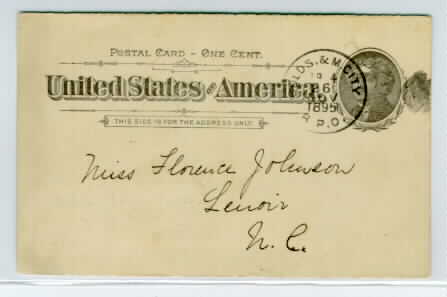 POSTAL CARD - ONE CENT.
United States of America.
THIS SIDE IS FOR THE ADDRESS ONLY.
LDS. & M. CITY
1895
R.P.O.
Miss Florence Johnson
Lenoir
N. C.